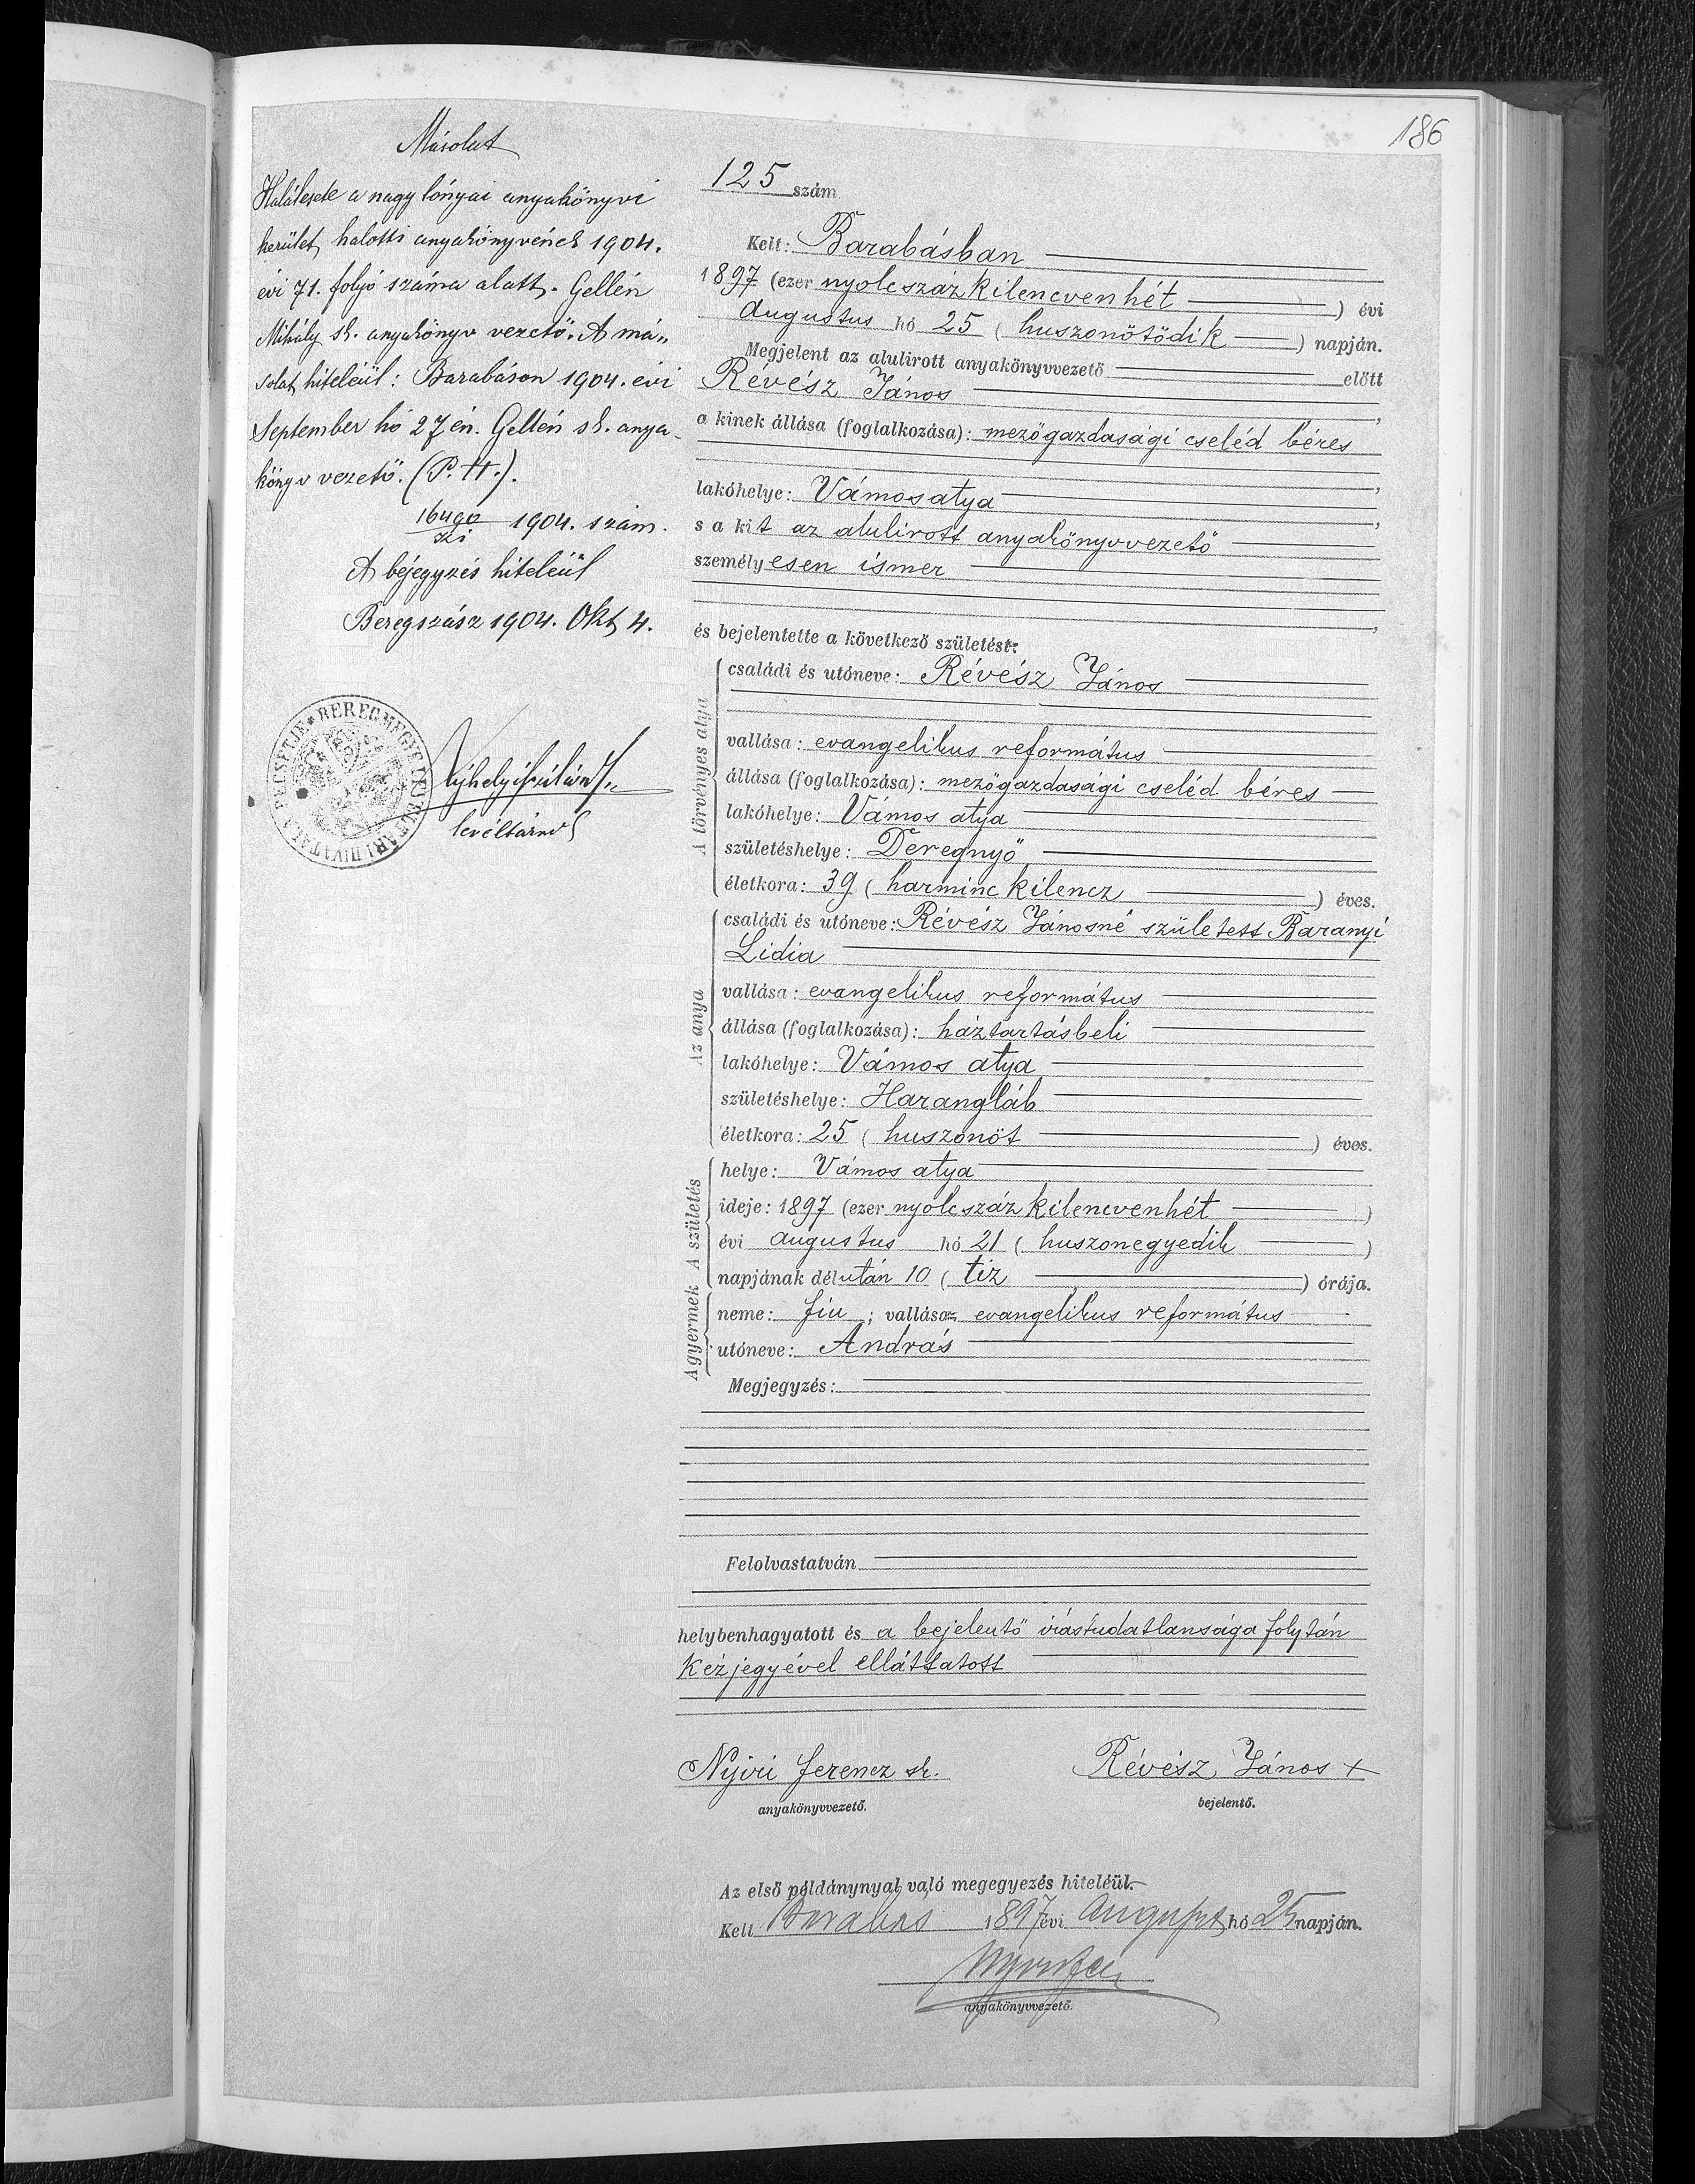 186
Másolat
Halálesete a nagy lónyai anyakönyvi
kerület halotti anyakönyvének 1904.
évi 71. folyó száma alatt. Gellén
Mihály sk. anyakönyv vezető. A má„
solat hiteléül: Barabáson 1904. évi
September hó 27 én. Gellén sk. anya-
könyv vezető. (P. H.).
1904. szám.
A bejegyzés hiteléül
Beregszász 1904. Okt 4.
levéltárnok
125 szám
Kelt: Barabásban
1897 (ezer nyolcszáz kilencvenhét ) évi
augustus hó 25 ( huszonötödik ) napján.
Megjelent az alulirott anyakönyvvezető előtt
Révész János ,
a kinek állása (foglalkozása): mezőgazdasági cseléd béres
,
lakóhelye: Vámosatya ,
s a kit az alulirott anyakönyvvezető
személyesen ismer
,
és bejelentette a következő születést:
A törvényes atya
családi és utóneve: Révész János
vallása: evangelikus református
állása (foglalkozása): mezőgazdasági cseléd béres
lakóhelye: Vámos atya
születéshelye: Deregnyő
életkora: 39 ( harminc kilencz ) éves.
Az anya
családi és utóneve: Révész Jánosné született Baranyi
Lidia
vallása: evangelikus református
állása (foglalkozása): háztartásbeli
lakóhelye: Vámos atya
születéshelye: Harangláb
életkora: 25 ( huszonöt ) éves.
A születés
helye: Vámos atya
ideje: 1897 (ezer nyolcszáz kilencvenhét )
évi augustus hó 21 ( huszonegyedik )
napjának délután 10 ( tiz ) órája.
A gyermek
neme: fiu ; vallása: evangelikus református
utóneve: András
Megjegyzés:
Felolvastatván
helybenhagyatott és a bejelentő irástudatlansága folytán
kézjegyével elláttatott
Nyiri Ferencz sk. Révész János x
anyakönyvvezető. bejelentő.
Az első példánynyal való megegyezés hiteléül.
Kelt Barabás 1897 évi August hó 25 napján.
anyakönyvvezető.